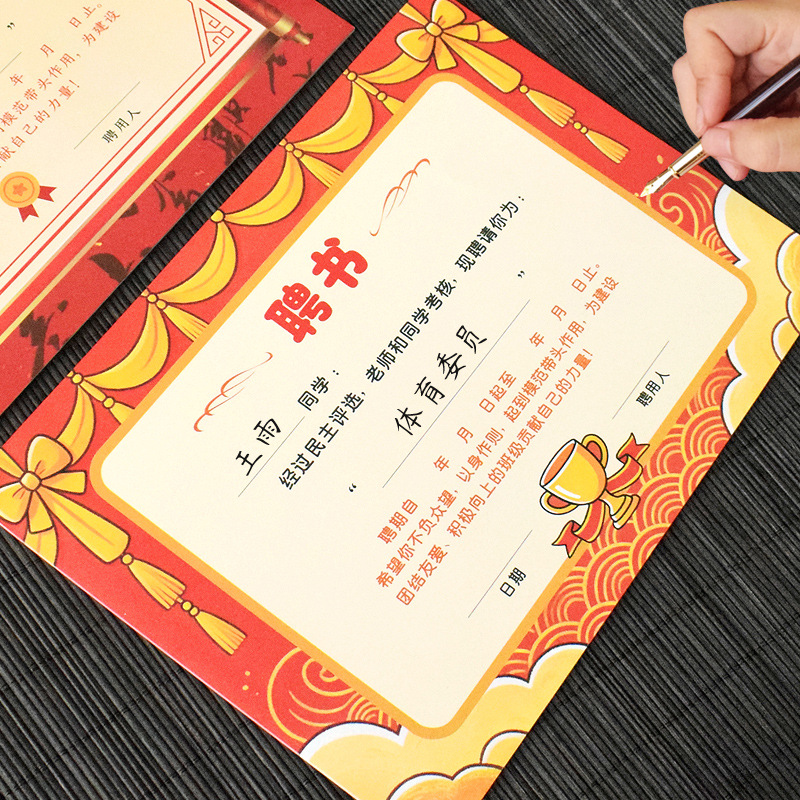 ”
年 月 日止。
模范带头作用，为建设
献自己的力量！
聘用人
聘书
王雨 同学：
经过民主评选，老师和同学考核，现聘请你为：
“ 体育委员 ”
聘期自 年 月 日起至 年 月 日止。
希望你不负众望，以身作则，起到模范带头作用，为建设
团结友爱、积极向上的班级贡献自己的力量！
聘用人
日期